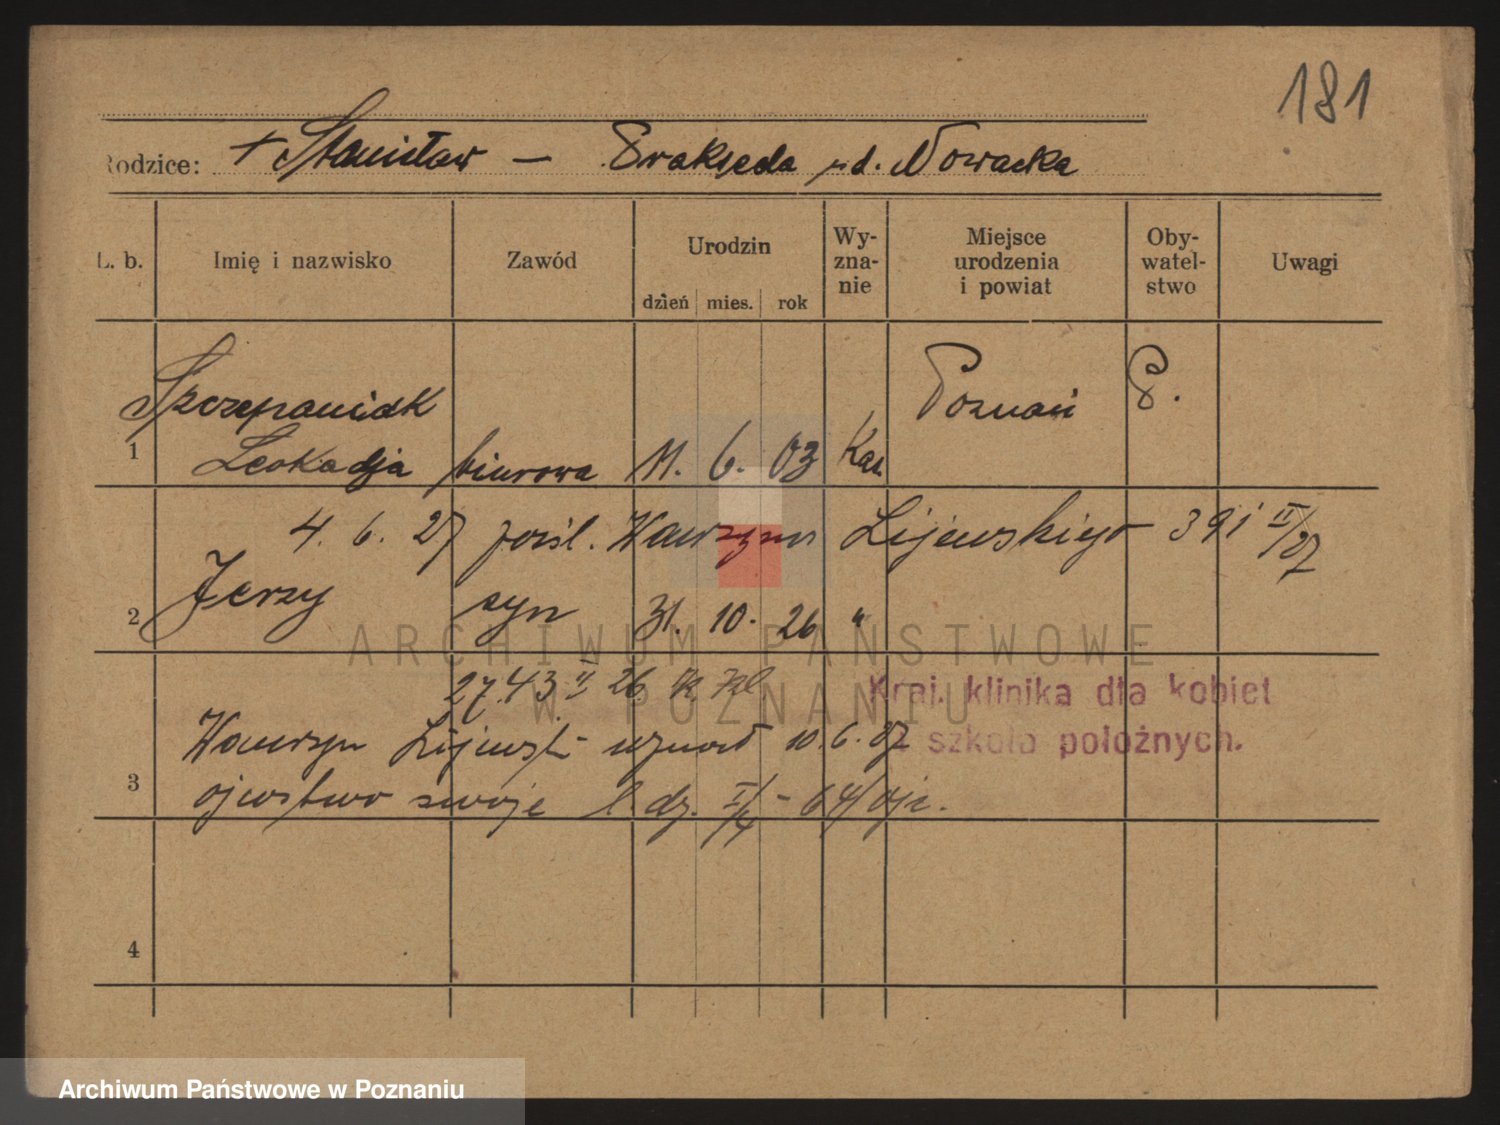 181
Rodzice: + Stanisław — Prakseda ud. Nowacka
L. b. Imię i nazwisko Zawód Urodzin dzień mies. rok Wy-zna-nie Miejsce urodzenia i powiat Oby-watel-stwo Uwagi
Szczepaniak Poznań P.
1 Leokadja biurowa 11. 6. 03 Kat.
4. 6. 27 pośl. Wawrzyn Lijewskiego 391 II/27
2 Jerzy syn 31. 10. 26 "
27.43 II 26
Kraj. klinika dla kobiet
szkoła położnych.
Wawrzyn Lijewski uznał 10. 6. 27
3 ojcostwo swoje l. dz. 64/
4
ARCHIWUM PAŃSTWOWE
W POZNANIU
Archiwum Państwowe w Poznaniu